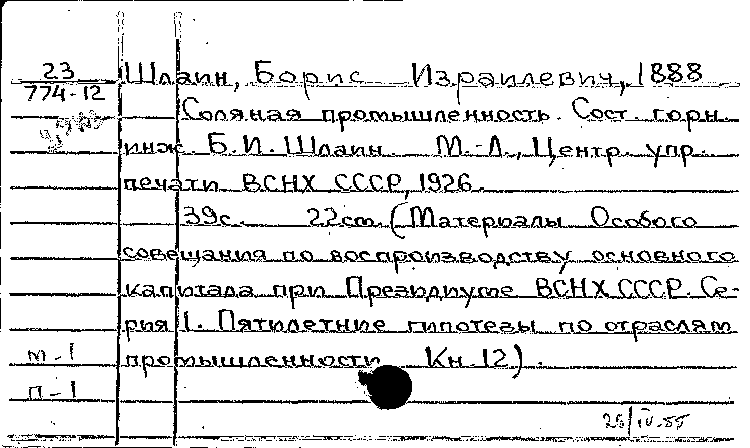 23
774-12
Шлаин, Борис Израилевич, 1888
Соляная промышленность. Сост. горн.
инж. Б.И. Шлаин. М.-Л., Центр. упр.
печати ВСНХ СССР, 1926.
39с. 22см. (Материалы Особого
совещания по воспроизводству основного
капитала при Президиуме ВСНХ СССР. Се-
рия I. Пятилетние гипотезы по отраслям
промышленности Кн. 12).
М-1
П-1
25/IV-55